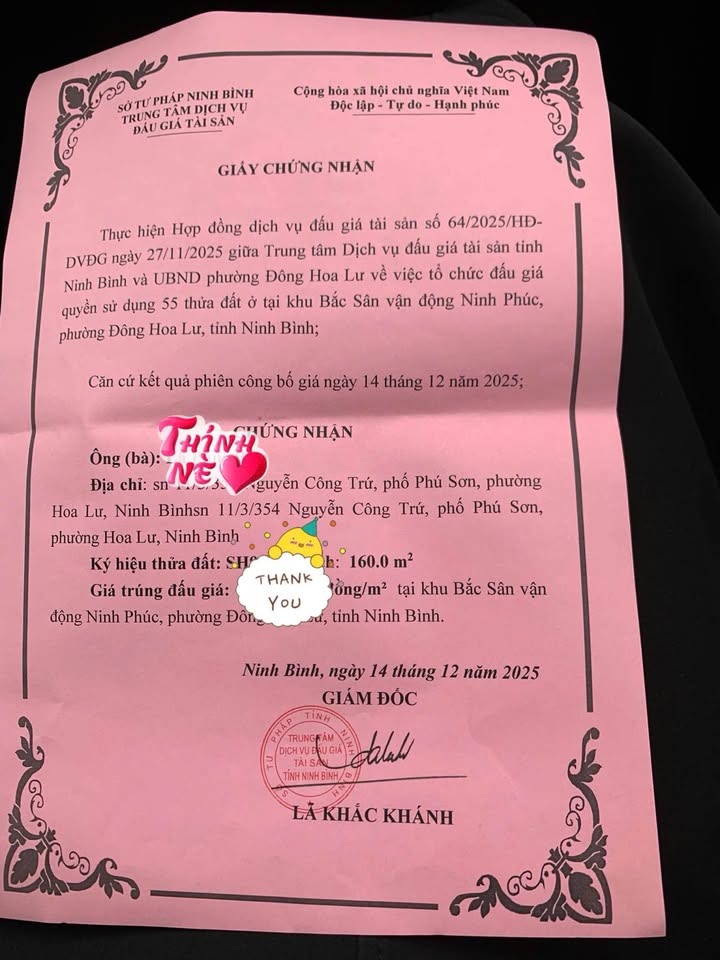 SỞ TƯ PHÁP NINH BÌNH
TRUNG TÂM DỊCH VỤ
ĐẤU GIÁ TÀI SẢN
Cộng hòa xã hội chủ nghĩa Việt Nam
Độc lập - Tự do - Hạnh phúc
GIẤY CHỨNG NHẬN
Thực hiện Hợp đồng dịch vụ đấu giá tài sản số 64/2025/HĐ-
DVĐG ngày 27/11/2025 giữa Trung tâm Dịch vụ đấu giá tài sản tỉnh
Ninh Bình và UBND phường Đông Hoa Lư về việc tổ chức đấu giá
quyền sử dụng 55 thửa đất ở tại khu Bắc Sân vận động Ninh Phúc,
phường Đông Hoa Lư, tỉnh Ninh Bình;
Căn cứ kết quả phiên công bố giá ngày 14 tháng 12 năm 2025;
CHỨNG NHẬN
THÍNH
NÈ
Ông (bà):
Địa chỉ: sn Nguyễn Công Trứ, phố Phú Sơn, phường
Hoa Lư, Ninh Bìnhsn 11/3/354 Nguyễn Công Trứ, phố Phú Sơn,
phường Hoa Lư, Ninh Bình
Ký hiệu thửa đất: 160.0 m²
Giá trúng đấu giá: đồng/m² tại khu Bắc Sân vận
động Ninh Phúc, phường tỉnh Ninh Bình.
THANK
YOU
Ninh Bình, ngày 14 tháng 12 năm 2025
GIÁM ĐỐC
SỞ TƯ PHÁP TỈNH NINH BÌNH
TRUNG TÂM
DỊCH VỤ ĐẤU GIÁ
TÀI SẢN
TỈNH NINH BÌNH
LÃ KHẮC KHÁNH